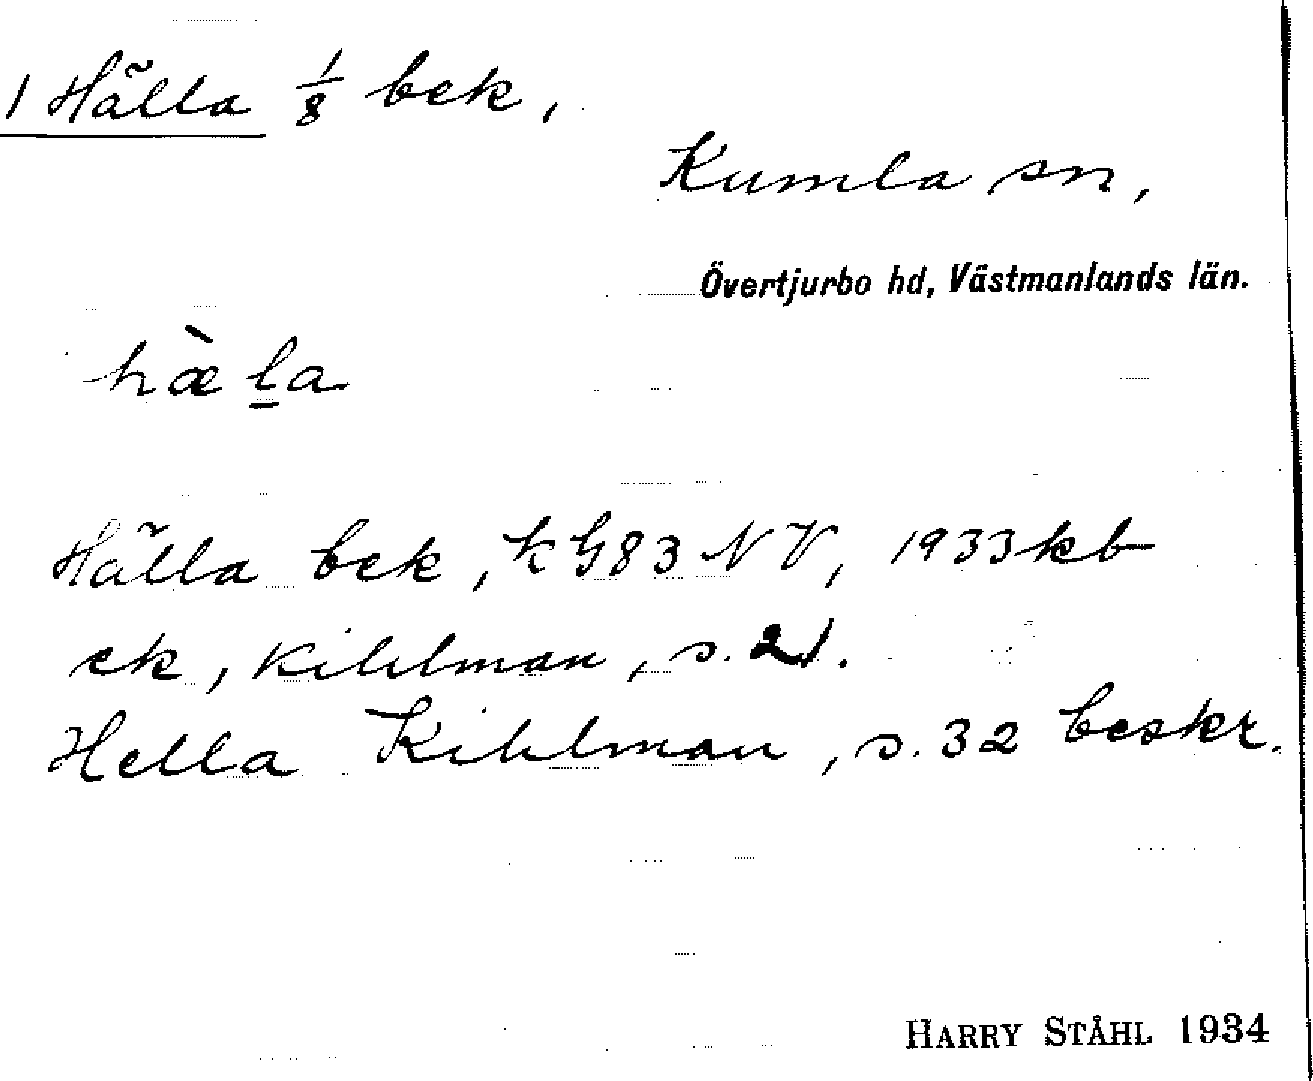 1 Hälla 1/8 bek,
Kumla sn,
Övertjurbo hd, Västmanlands län.
hæ̀l̠a
Hälla bek, KG83 NV, 1933 kb
ek, Kihlman, s. 21.
Hella Kihlman, s. 32 beskr.
HARRY STÅHL 1934